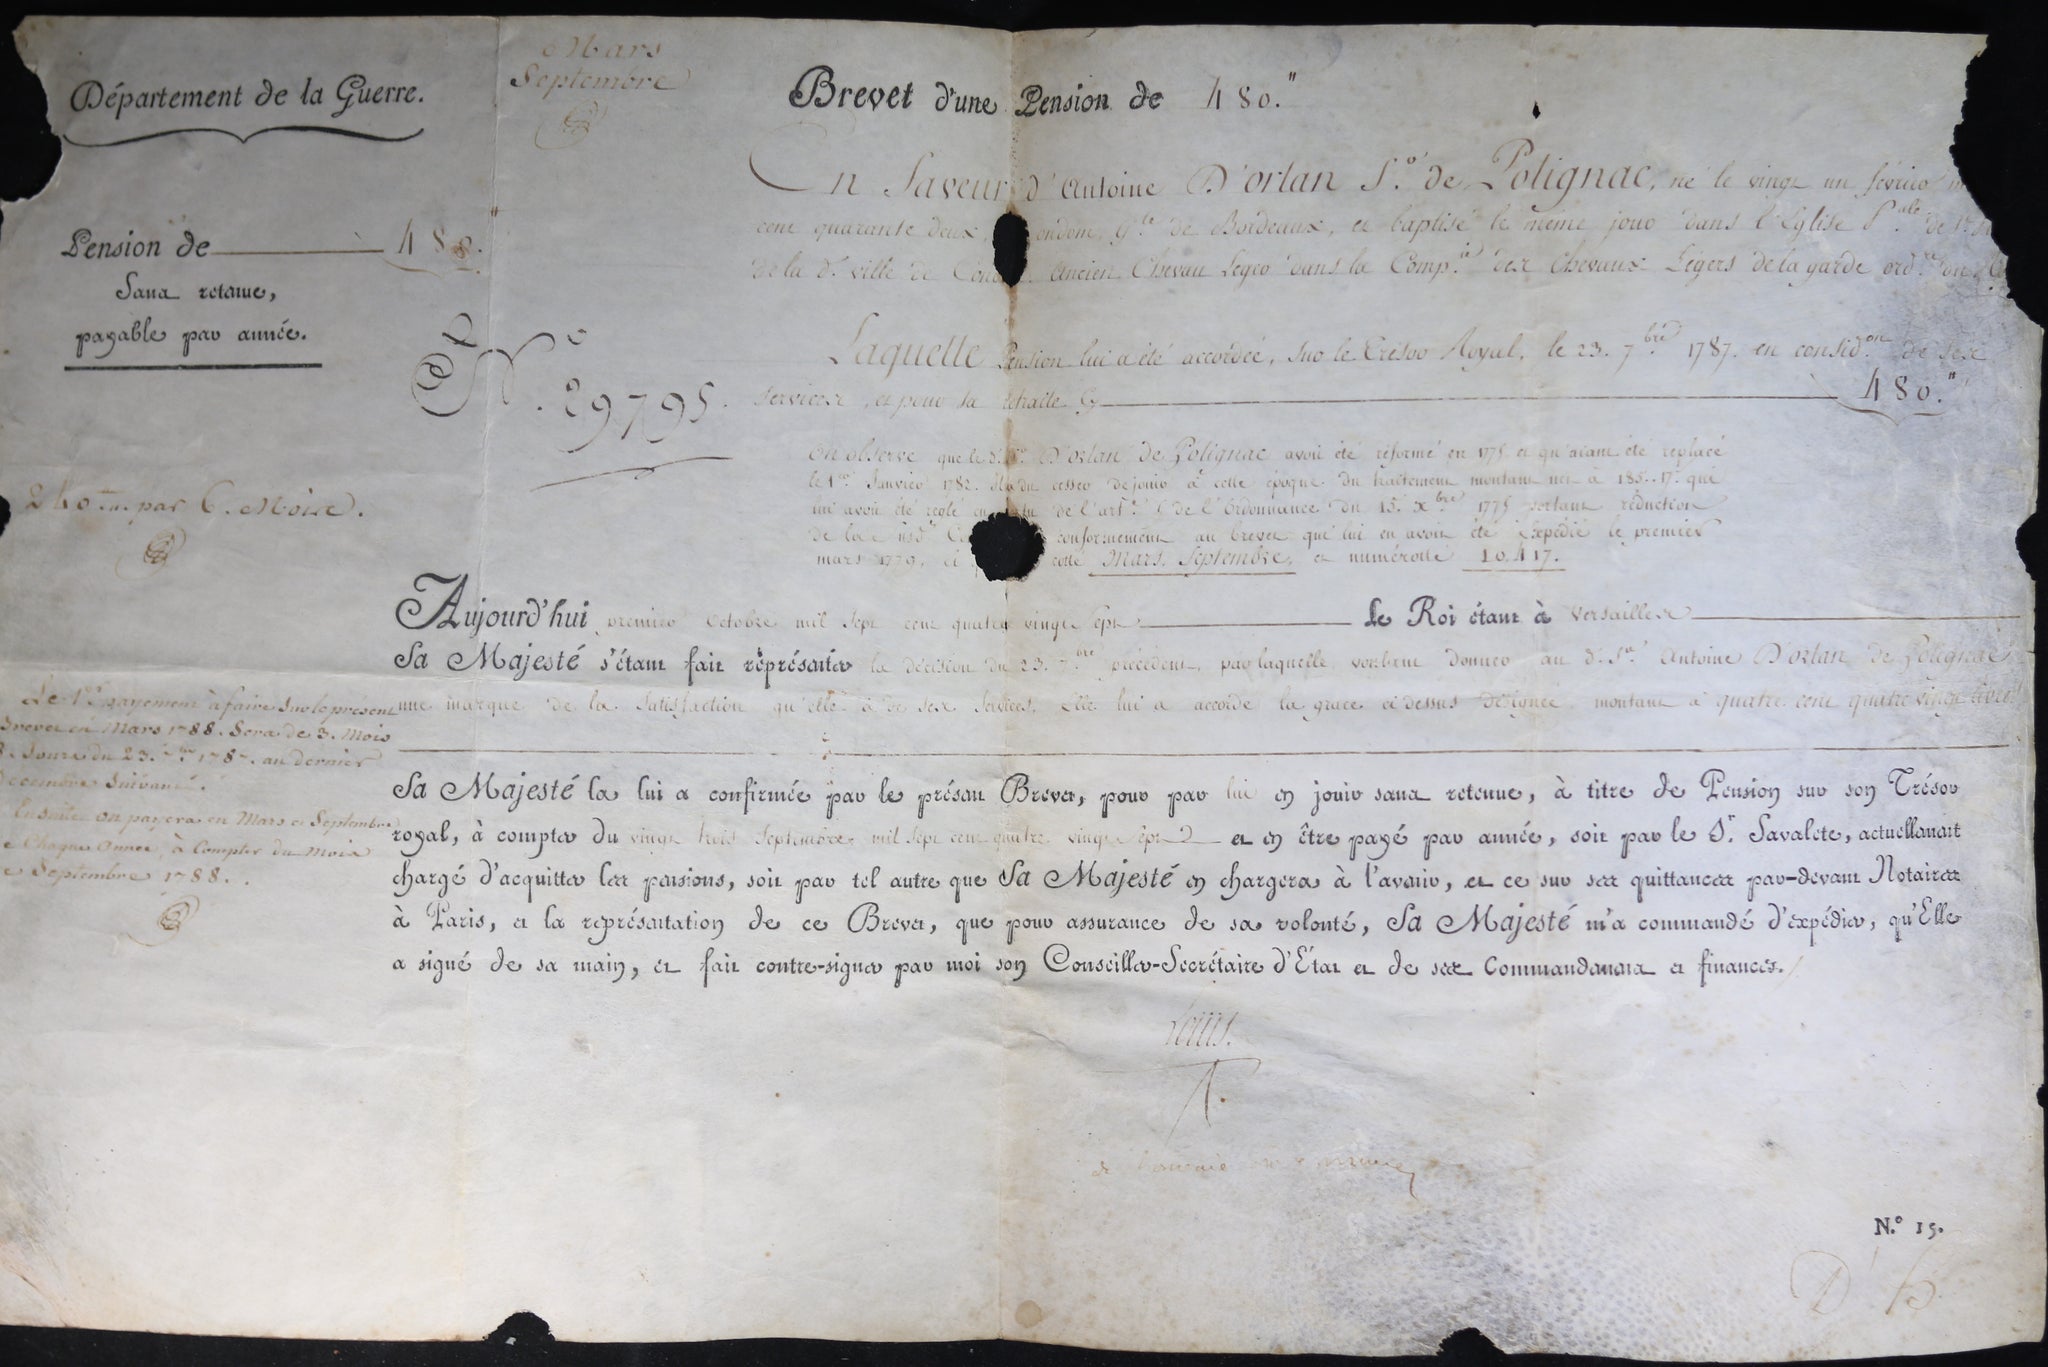 Département de la Guerre.
Mars
Septembre
Brevet d'une Pension de 480.''
Pension de 480.''
Sans retenue,
payable par année.
N.o 29795.
240 par 6. Mois.
En faveur d'Antoine D'orlan S.r de Polignac, né le vingt un février
cent quarante deux, ondom, G.té de Bordeaux, et baptisé le même jour dans l'Eglise P.ale de St.
de la d. ville de Cond Ancien Chevau Leger dans la Comp.ie des Chevaux Légers de la garde ord.re du
Laquelle Pension lui a été accordée, sur le Trésor Royal, le 23. 7.bre 1787. en consid.on de ses
services, et pour sa retraite cy 480.''
On observe que le d. S.r D'orlan de Polignac avoit été réformé en 1775 et qu'aiant été replacé
le 1.er Janvier 1782. Il a du cesser de jouir à cette époque du traitement montant net à 185. 17. qui
lui avoit été réglé en de l'art. de l'Ordonnance du 15. X.bre 1775 portant réduction
de la d. conformément au brevet qui lui en avoit été Expédié le premier
mars 1779, et cotté Mars, Septembre, et numérotté 10.417.
Aujourd'hui premier Octobre mil sept cent quatre vingt sept Le Roi étant à Versailles
Sa Majesté s'étant fait représenter la décision du 23. 7.bre précédent, par laquelle, voulant donner au d. S.r Antoine D'orlan de Polignac
une marque de la Satisfaction qu'elle a de ses Services, Elle lui a accordé la grace ci dessus désignée, montant à quatre cent quatre vingt livres
Sa Majesté la lui a confirmée par le présent Brevet, pour par lui en jouir sans retenue, à titre de Pension sur son Trésor
royal, à compter du vingt trois Septembre mil sept cent quatre vingt sept et en être payé par année, soit par le S.r Savalete, actuellement
chargé d'acquitter les pensions, soit par tel autre que Sa Majesté en chargera à l'avenir, et ce sur ses quittances par-devant Notaires
à Paris, et la représentation de ce Brevet, que pour assurance de sa volonté, Sa Majesté m'a commandé d'expédier, qu'Elle
a signé de sa main, et fait contre-signer par moi son Conseiller-Secrétaire d'Etat et de ses Commandemens et finances.
Le 1.er payement à faire sur le présent
Brevet en Mars 1788. Sera de 3. Mois
8. Jours du 23. 7.bre 1787. au dernier
Decembre Suivant.
Ensuite on payera en Mars et Septembre
de Chaque Année, à Compter du Mois
de Septembre 1788.
Louis.
N.o 15.